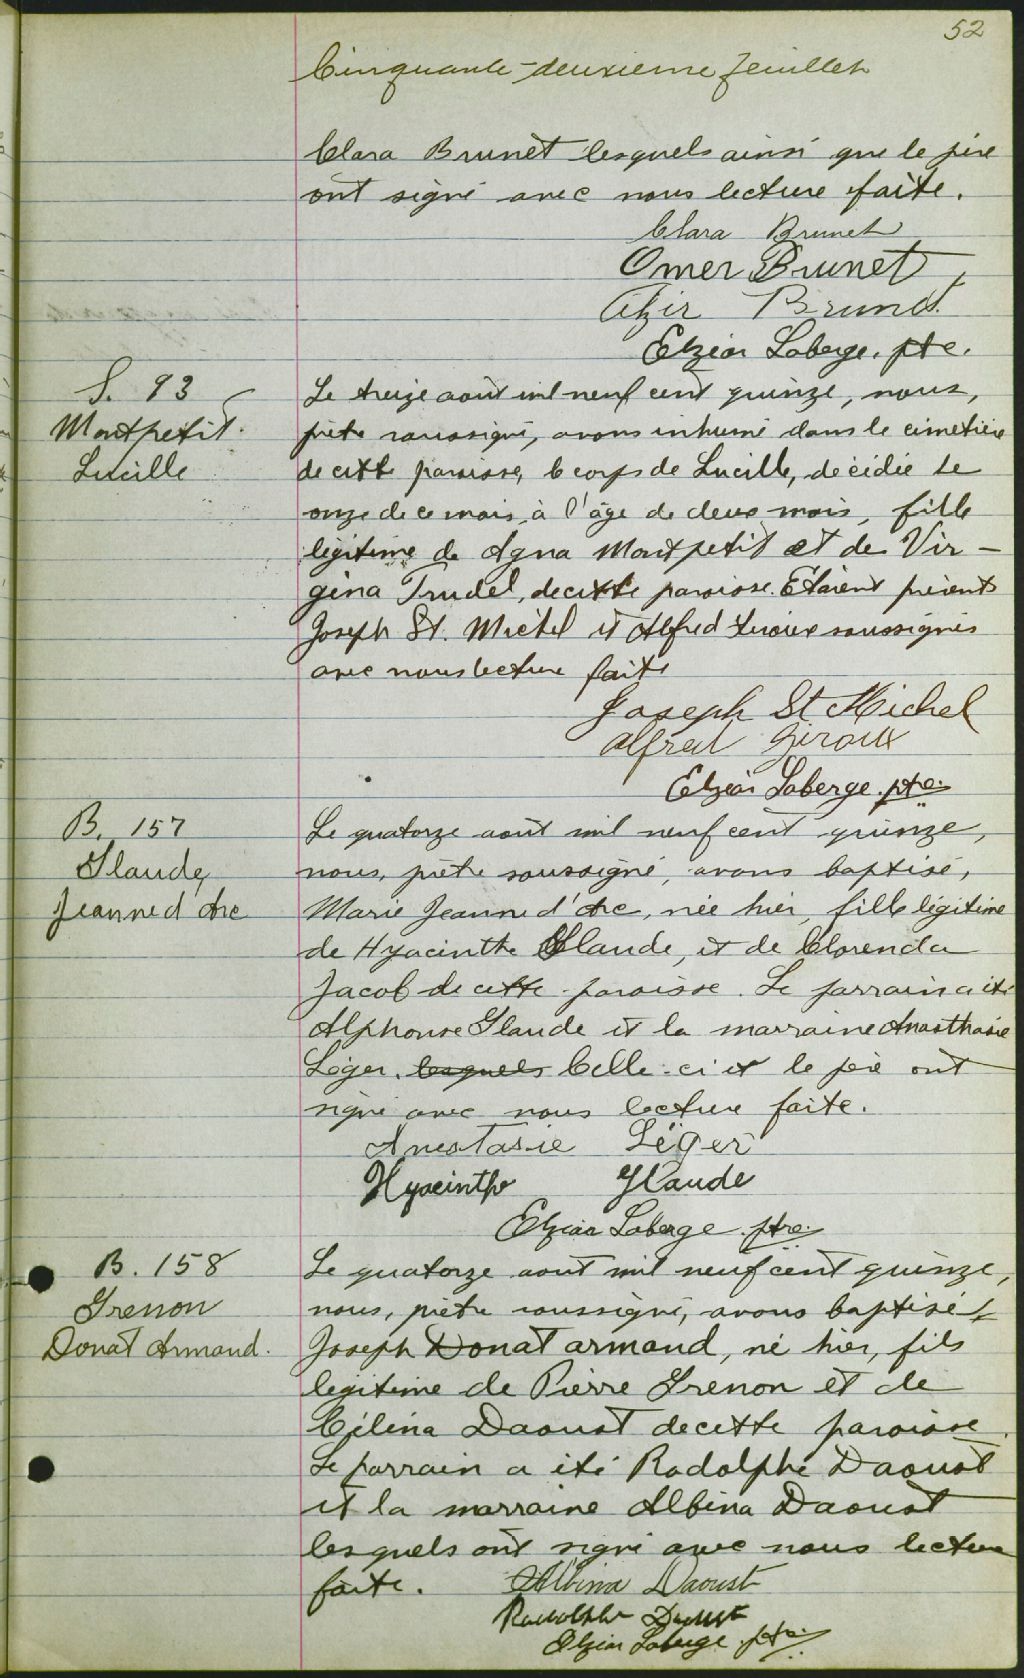 52
Cinquante-deuxieme feuillet
Clara Brunet lesquels ainsi que le père
ont signé avec nous lecture faite.
Clara Brunet
Omer Brunet
Alzir Brunet
Elzéar Laberge, ptre.
S. 93
Montpetit.
Lucille
Le treize août mil neuf cent quinze, nous,
prêtre soussigné, avons inhumé dans le cimetière
de cette paroisse, le corps de Lucille, décédée le
onze de ce mois, à l'âge de deux mois, fille
légitime de Agna Montpetit et de Vir-
gina Trudel, de cette paroisse. Etaient présents
Joseph St. Michel et Alfred Giroux soussignés
avec nous lecture faite
Joseph St Michel
Alfred Giroux
Elzéar Laberge. ptre.
B. 157
Glaude,
Jeanne d'Arc
Le quatorze août mil neuf cent quinze,
nous, prêtre soussigné, avons baptisé,
Marie Jeanne d'Arc, née hier, fille légitime
de Hyacinthe Glaude, et de Clorenda
Jacob de cette paroisse. Le parrain a été
Alphonse Glaude et la marraine Anasthasie
Léger. lesquels Celle-ci et le père ont
signé avec nous lecture faite.
Anestasie Léger
Hyacinthe Glaude
Elzéar Laberge ptre.
B. 158
Grenon
Donat Armand.
Le quatorze août mil neuf cent quinze,
nous, prêtre soussigné, avons baptisé
Joseph Donat armand, né hier, fils
légitime de Pierre Grenon et de
Célina Daoust de cette paroisse.
Le parrain a été Rodolphe Daoust
et la marraine Albina Daoust
lesquels ont signé avec nous lecture
faite.
Albina Daoust
Rodolphe Daoust
Elzéar Laberge ptre.